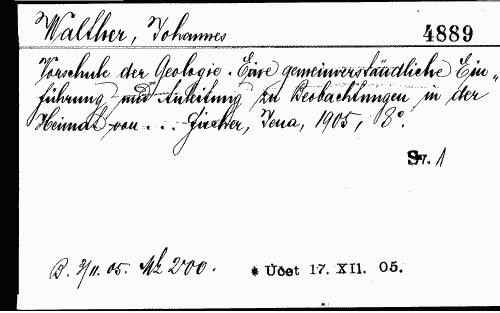 Walther, Johannes
4889
Vorschule der Geologie. Eine gemeinverständliche Ein„
führung und Anleitung zu Beobachtungen in der
Heimat von ... Fischer, Jena, 1905, 8°.
Sv. 1
D. 3/11. 05. Mk 2'00. * Účet 17. XII. 05.